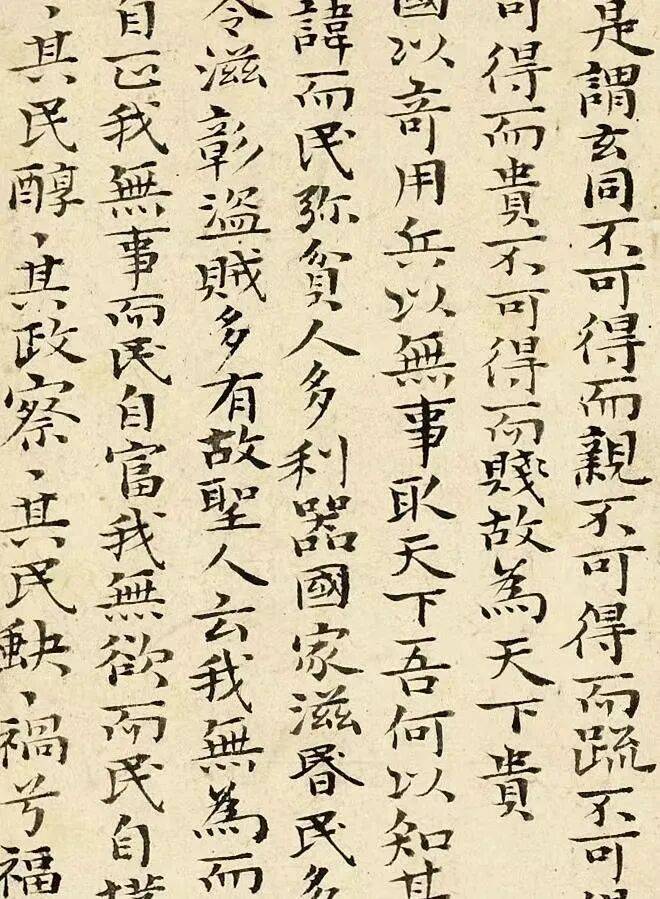 是謂玄同不可得而親不可得而疏不可
可得而貴不可得而賤故為天下貴
國以奇用兵以無事取天下吾何以知其
諱而民弥貧人多利器國家滋昬民多
令滋彰盜賊多有故聖人云我無為而
自正我無事而民自富我無欲而民自樸
、其民醇、其政察、其民缺、禍兮福